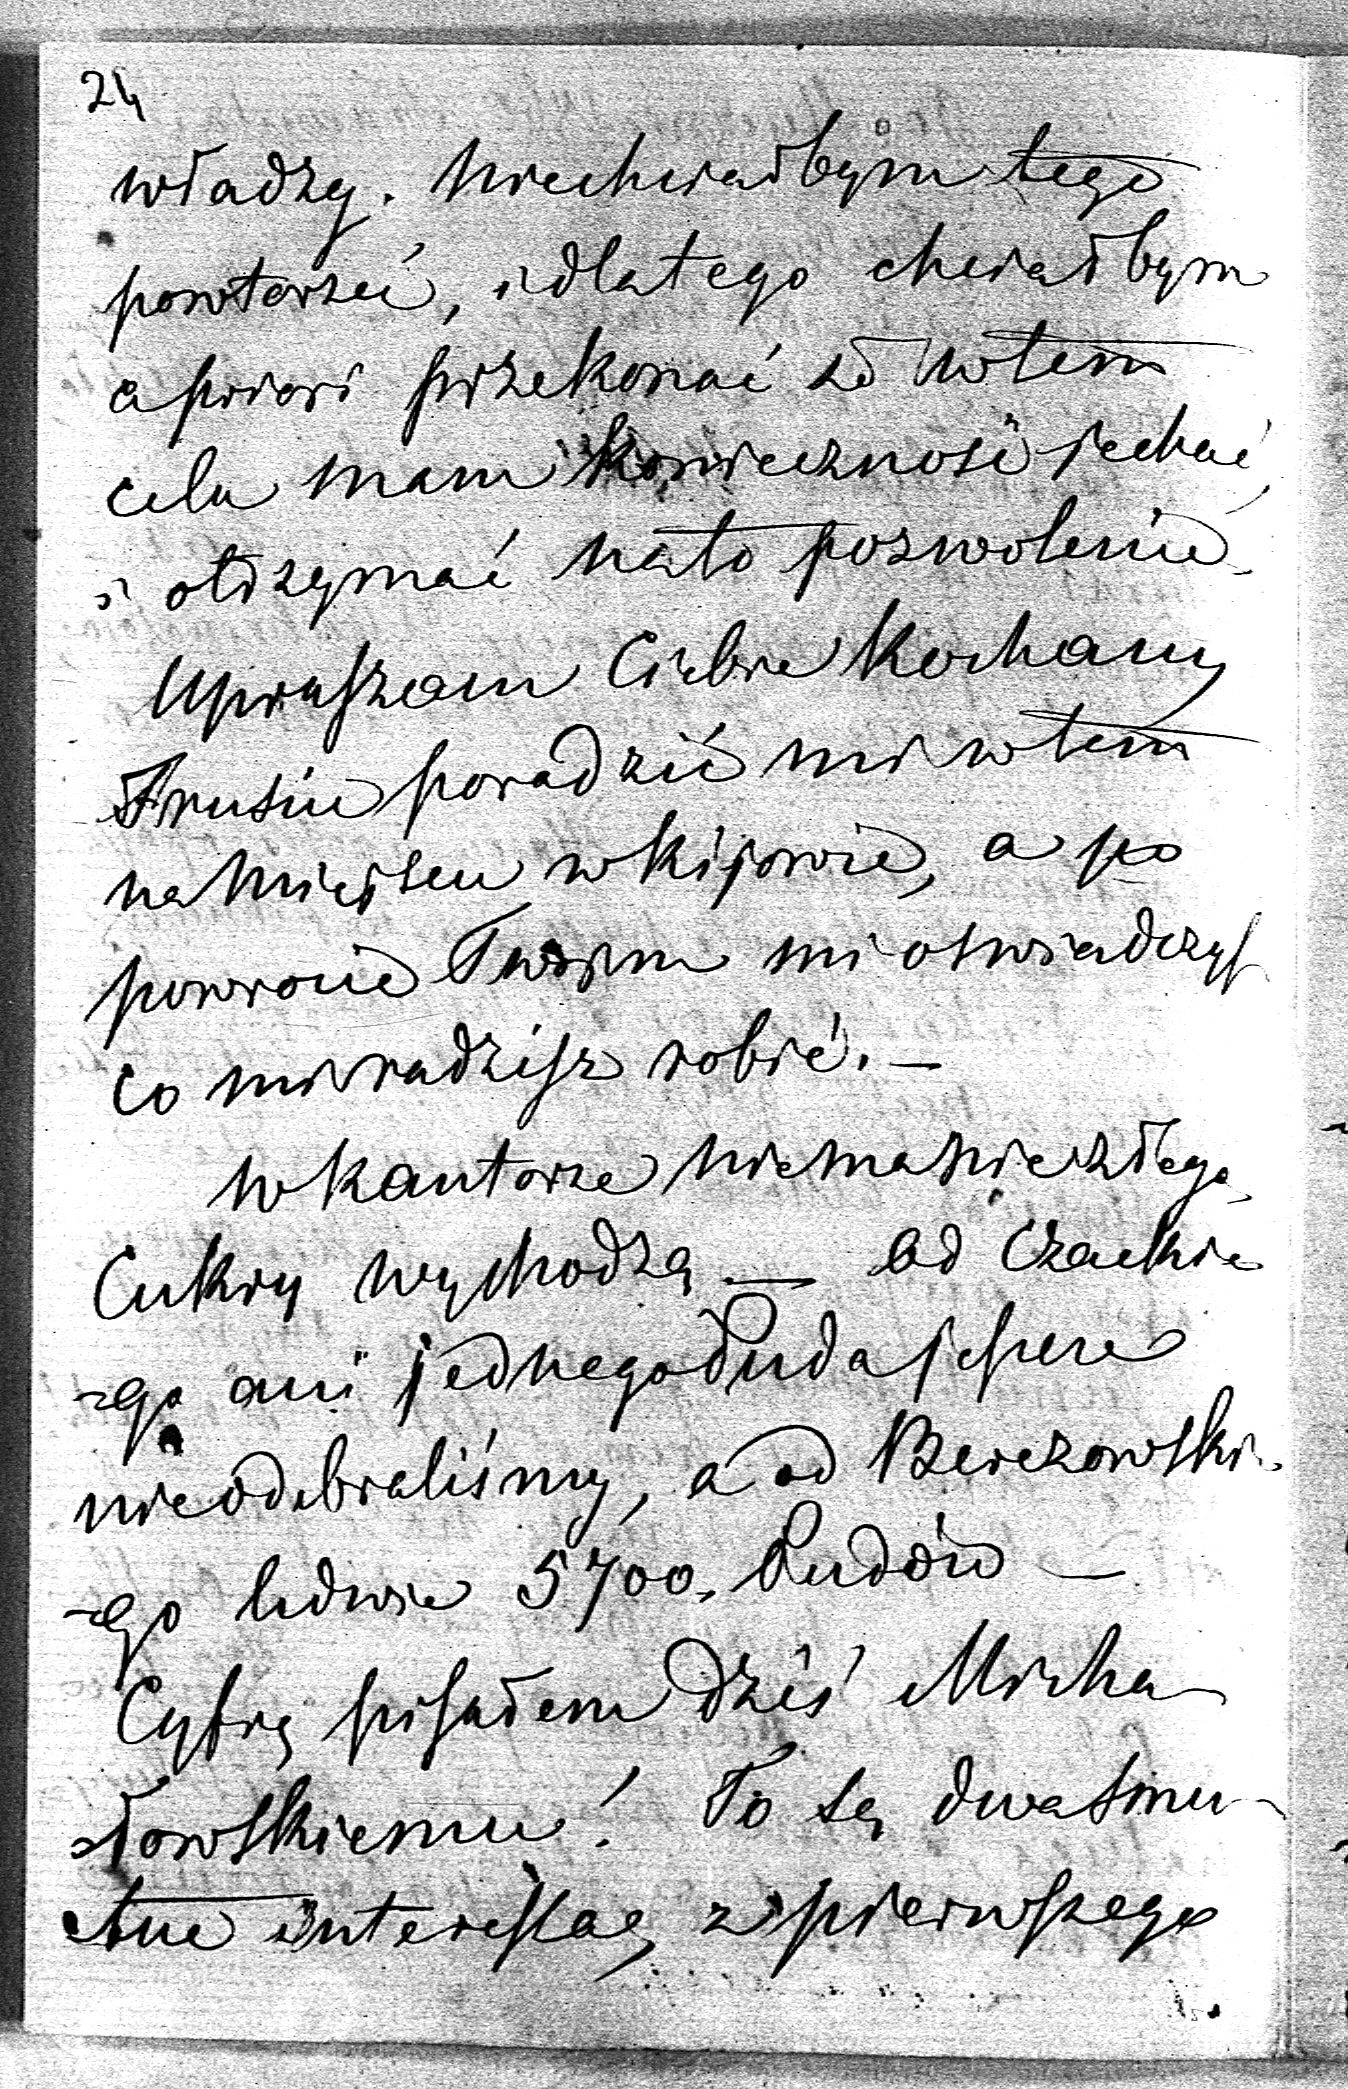 24
władzy. Niechciałbym tego
powtorzeć, i dlatego chciałbym
a priori przekonać że w tem
celu mam konieczność jechać,
i otrzymać na to pozwolenie.
Upraszam Ciebie Kochany
poradzić mi w tem
na miejscu w Kijowie, a po
powrocie Twojem mi oswiadczysz
co mi radzisz robić. —
W kantorze niema nic złego,
Cukry wychodzą — Od Czackie
-go ani jednego Puda jeszcze
nie odebraliśmy, a od Berezowski-
-go ledwie 5700. Pudów —
Cyfrę pisałem dziś Micha-
-łowskiemu! To są dwa smu-
-tne interessa, z pierwszego